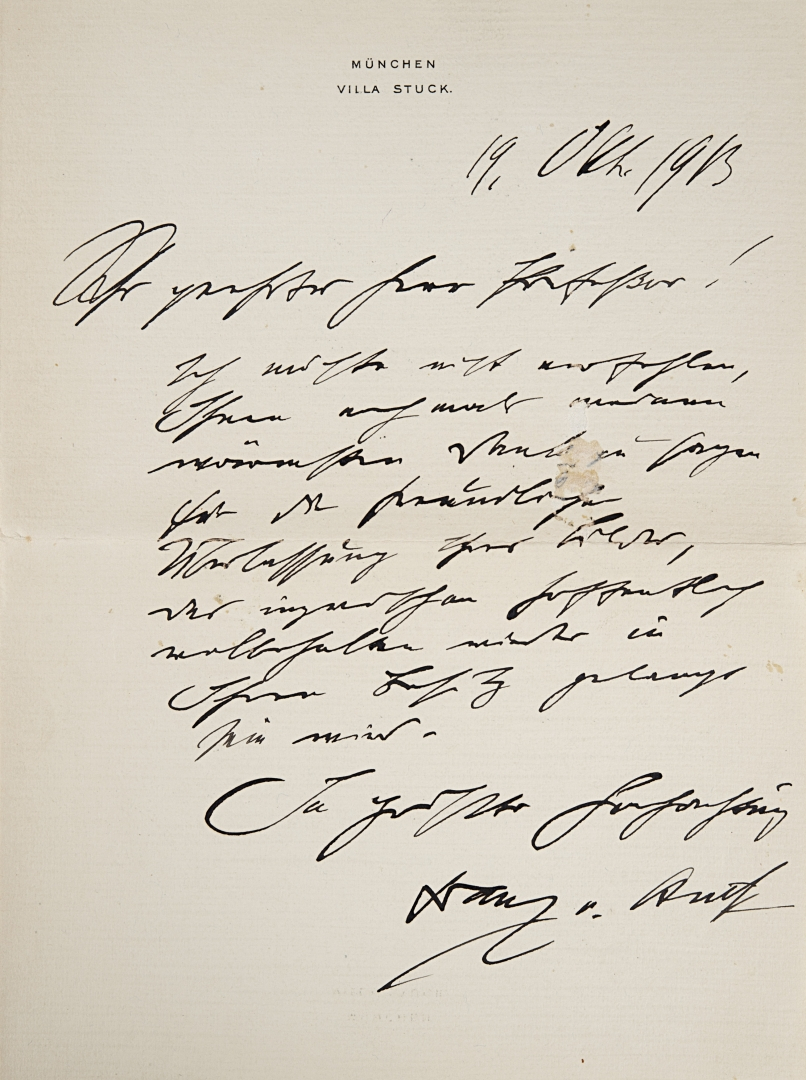 MÜNCHEN
VILLA STUCK.
19. Okt. 1913
Sehr geehrter Herr Professor!
Ich möchte nicht verfehlen,
Ihnen nochmals meinen
wärmsten Dank zu sagen
für die freundliche
Überlassung Ihres Bildes,
das inzwischen hoffentlich
wolbehalten wieder in
Ihren Besitz gelangt
sein wird.
In größter Hochachtung
Franz v. Stuck